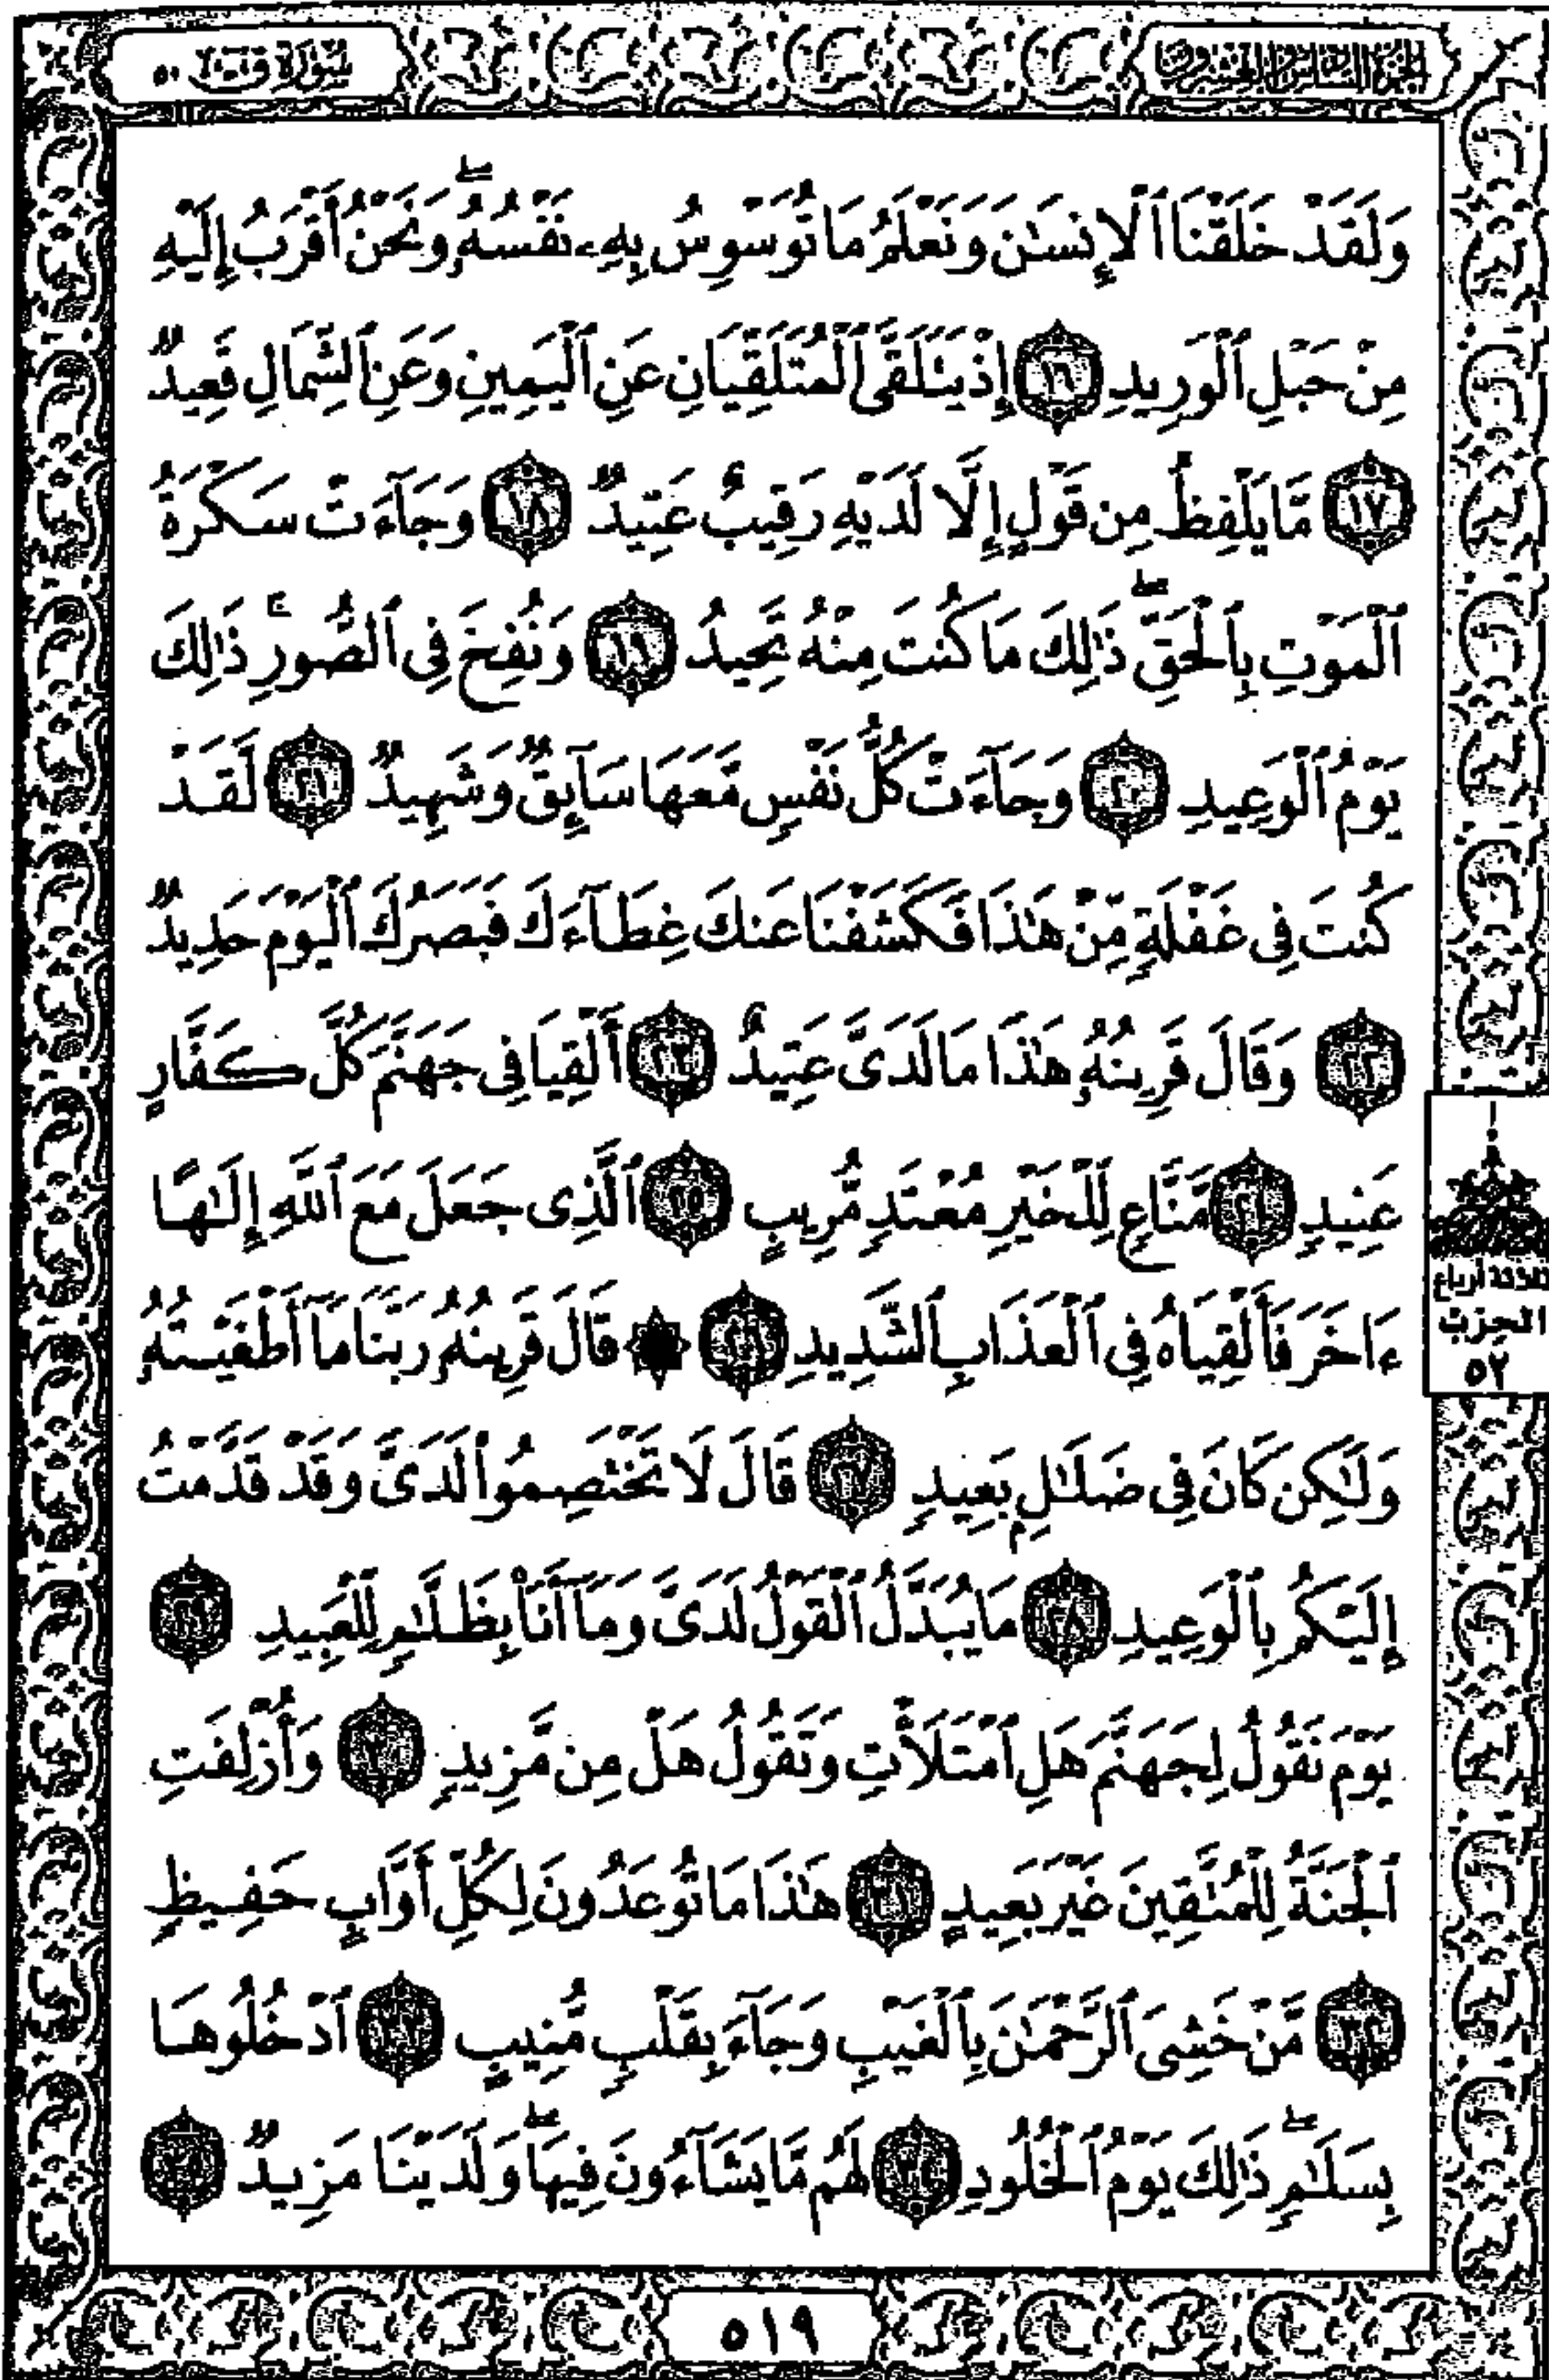 الجزء السادس والعشرون
سورة ق ٥٠
وَلَقَدْ خَلَقْنَا ٱلْإِنسَٰنَ وَنَعْلَمُ مَا تُوَسْوِسُ بِهِۦ نَفْسُهُۥ ۖ وَنَحْنُ أَقْرَبُ إِلَيْهِ
مِنْ حَبْلِ ٱلْوَرِيدِ ١٦ إِذْ يَتَلَقَّى ٱلْمُتَلَقِّيَانِ عَنِ ٱلْيَمِينِ وَعَنِ ٱلشِّمَالِ قَعِيدٌ
١٧ مَّا يَلْفِظُ مِن قَوْلٍ إِلَّا لَدَيْهِ رَقِيبٌ عَتِيدٌ ١٨ وَجَآءَتْ سَكْرَةُ
ٱلْمَوْتِ بِٱلْحَقِّ ۖ ذَٰلِكَ مَا كُنتَ مِنْهُ تَحِيدُ ١٩ وَنُفِخَ فِى ٱلصُّورِ ۚ ذَٰلِكَ
يَوْمُ ٱلْوَعِيدِ ٢٠ وَجَآءَتْ كُلُّ نَفْسٍ مَّعَهَا سَآئِقٌ وَشَهِيدٌ ٢١ لَّقَدْ
كُنتَ فِى غَفْلَةٍ مِّنْ هَٰذَا فَكَشَفْنَا عَنكَ غِطَآءَكَ فَبَصَرُكَ ٱلْيَوْمَ حَدِيدٌ
٢٢ وَقَالَ قَرِينُهُۥ هَٰذَا مَا لَدَىَّ عَتِيدٌ ٢٣ أَلْقِيَا فِى جَهَنَّمَ كُلَّ كَفَّارٍ
عَنِيدٍ ٢٤ مَّنَّاعٍ لِّلْخَيْرِ مُعْتَدٍ مُّرِيبٍ ٢٥ ٱلَّذِى جَعَلَ مَعَ ٱللَّهِ إِلَٰهًا
ءَاخَرَ فَأَلْقِيَاهُ فِى ٱلْعَذَابِ ٱلشَّدِيدِ ٢٦ ۞ قَالَ قَرِينُهُۥ رَبَّنَا مَآ أَطْغَيْتُهُۥ
وَلَٰكِن كَانَ فِى ضَلَٰلٍۭ بَعِيدٍ ٢٧ قَالَ لَا تَخْتَصِمُوا۟ لَدَىَّ وَقَدْ قَدَّمْتُ
إِلَيْكُم بِٱلْوَعِيدِ ٢٨ مَا يُبَدَّلُ ٱلْقَوْلُ لَدَىَّ وَمَآ أَنَا۠ بِظَلَّٰمٍ لِّلْعَبِيدِ ٢٩
يَوْمَ نَقُولُ لِجَهَنَّمَ هَلِ ٱمْتَلَأْتِ وَتَقُولُ هَلْ مِن مَّزِيدٍ ٣٠ وَأُزْلِفَتِ
ٱلْجَنَّةُ لِلْمُتَّقِينَ غَيْرَ بَعِيدٍ ٣١ هَٰذَا مَا تُوعَدُونَ لِكُلِّ أَوَّابٍ حَفِيظٍ
٣٢ مَّنْ خَشِىَ ٱلرَّحْمَٰنَ بِٱلْغَيْبِ وَجَآءَ بِقَلْبٍ مُّنِيبٍ ٣٣ ٱدْخُلُوهَا
بِسَلَٰمٍ ۖ ذَٰلِكَ يَوْمُ ٱلْخُلُودِ ٣٤ لَهُم مَّا يَشَآءُونَ فِيهَا ۖ وَلَدَيْنَا مَزِيدٌ ٣٥
ثلاثة أرباع
الحزب
٥٢
٥١٩